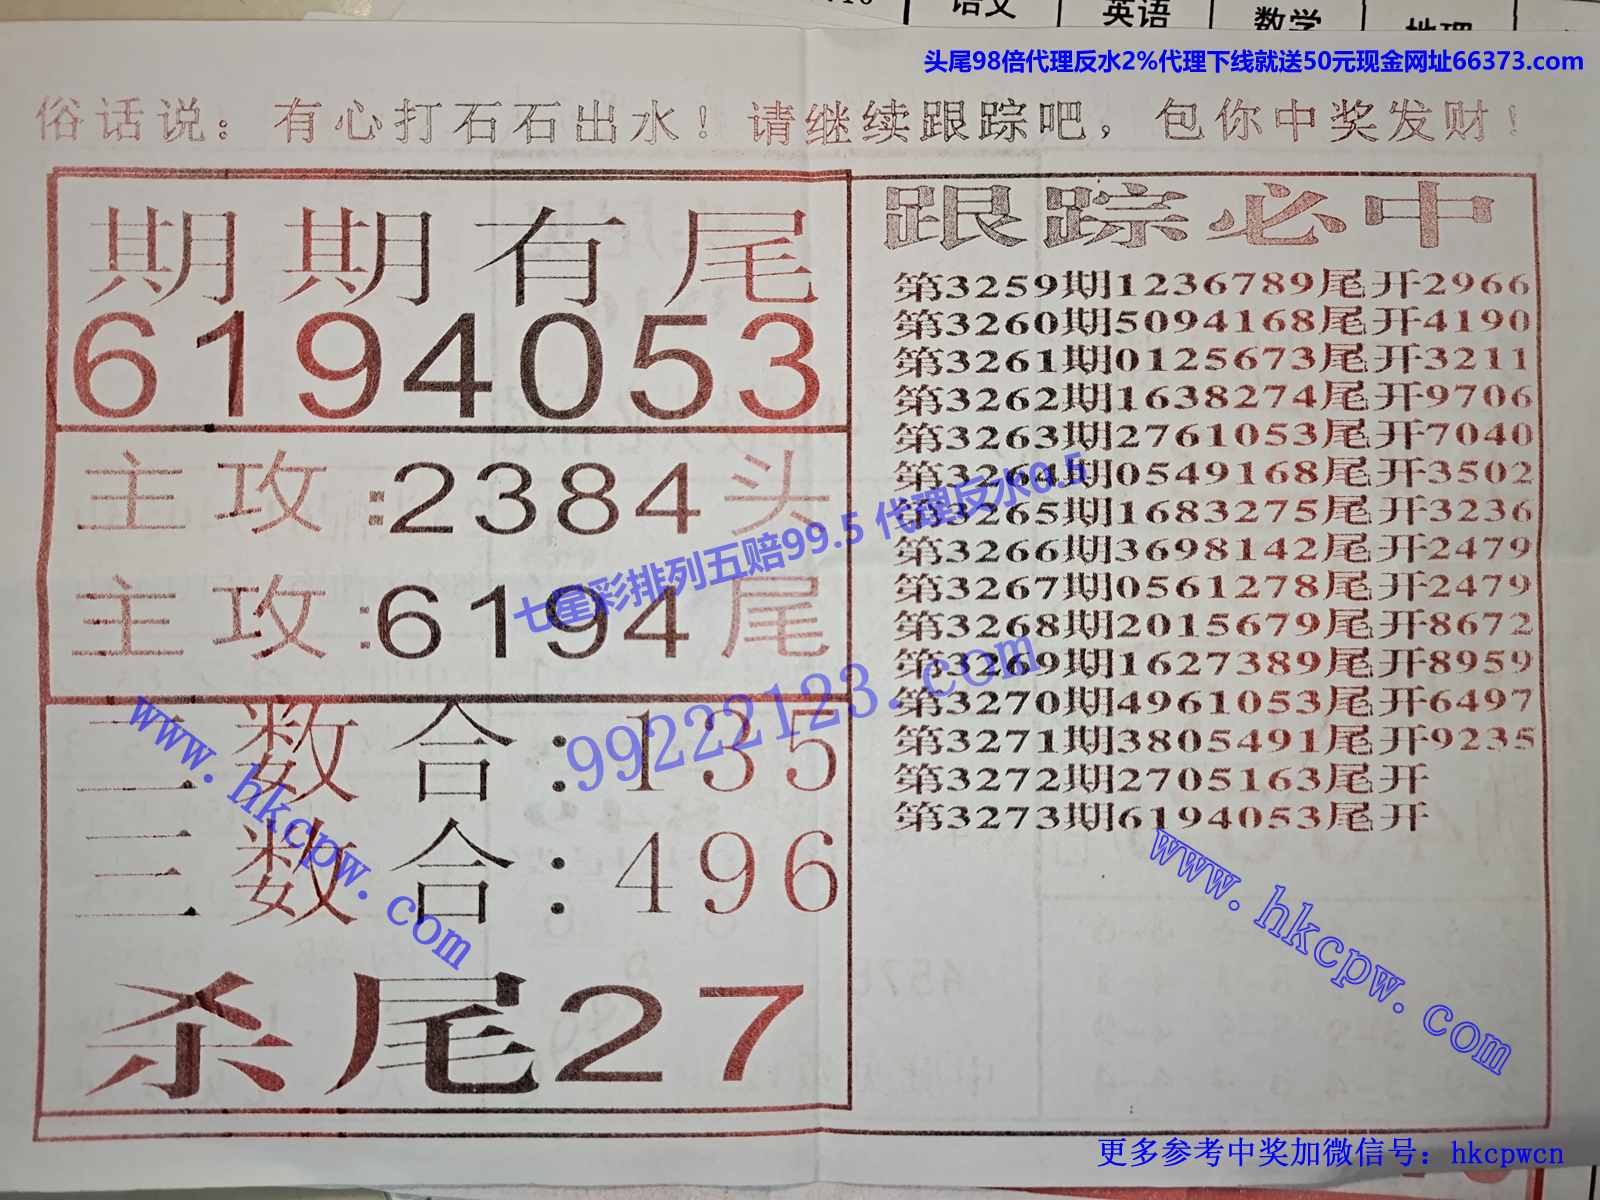 语文 英语 数学 地理
头尾98倍代理反水2%代理下线就送50元现金网址66373.com
俗话说：有心打石石出水！请继续跟踪吧，包你中奖发财！
期期有尾
6194053
主攻:2384头
主攻:6194尾
二数合:135
三数合:496
杀尾27
跟踪必中
第3259期1236789尾开2966
第3260期5094168尾开4190
第3261期0125673尾开3211
第3262期1638274尾开9706
第3263期2761053尾开7040
第3264期0549168尾开3502
第3265期1683275尾开3236
第3266期3698142尾开2479
第3267期0561278尾开2479
第3268期2015679尾开8672
第3269期1627389尾开8959
第3270期4961053尾开6497
第3271期3805491尾开9235
第3272期2705163尾开
第3273期6194053尾开
七星彩排列五赔99.5 代理反水0.5
99222123.com
www.hkcpw.com
www.hkcpw.com
更多参考中奖加微信号：hkcpwcn